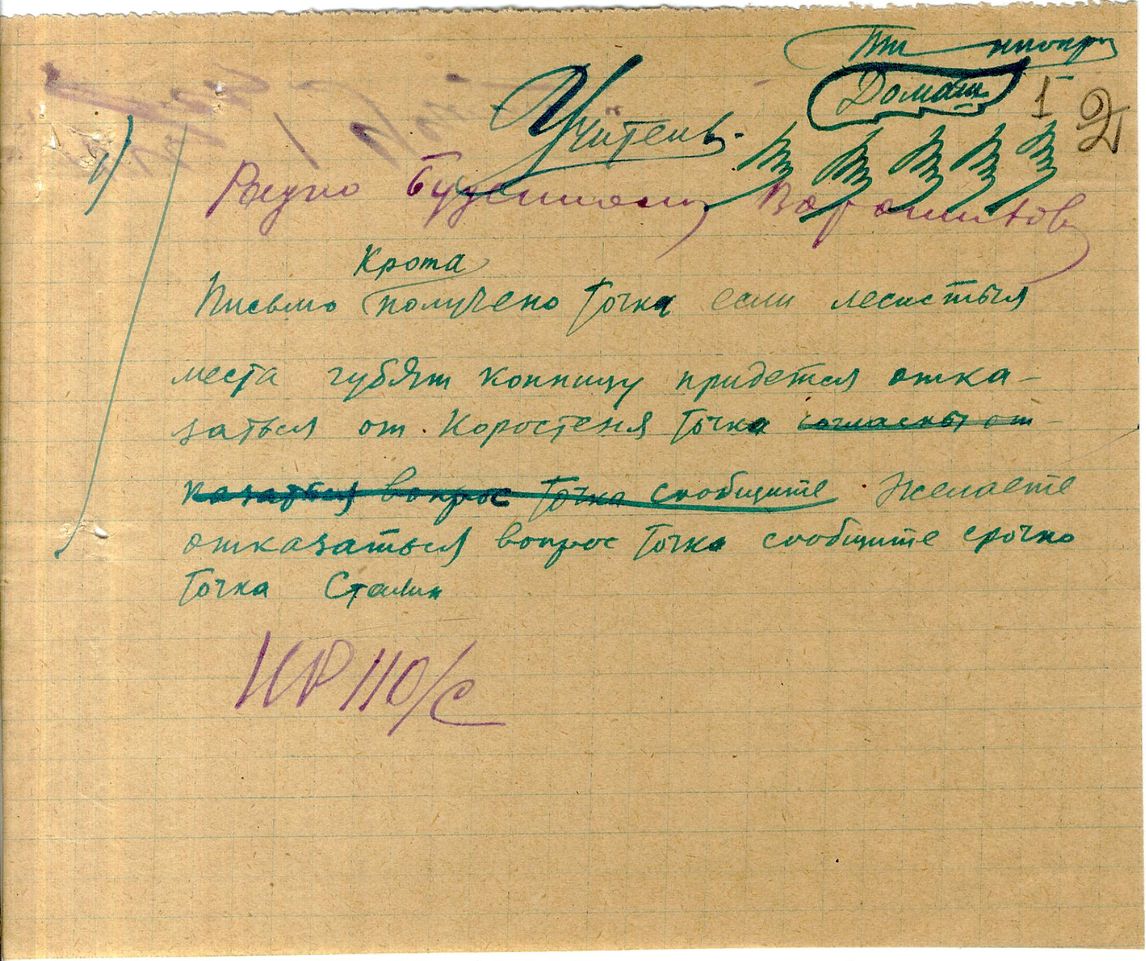 Домаш
1 2
Учитель
1)
Радио Буденному Ворошилову
Крота
Письмо получено Точка если лесистыя
места губят конницу придется отка-
заться от Коростеня Точка согласны от-
казаться вопрос Точка сообщите Желаете
отказаться вопрос Точка сообщите срочно
Точка Сталин
НР 110/с